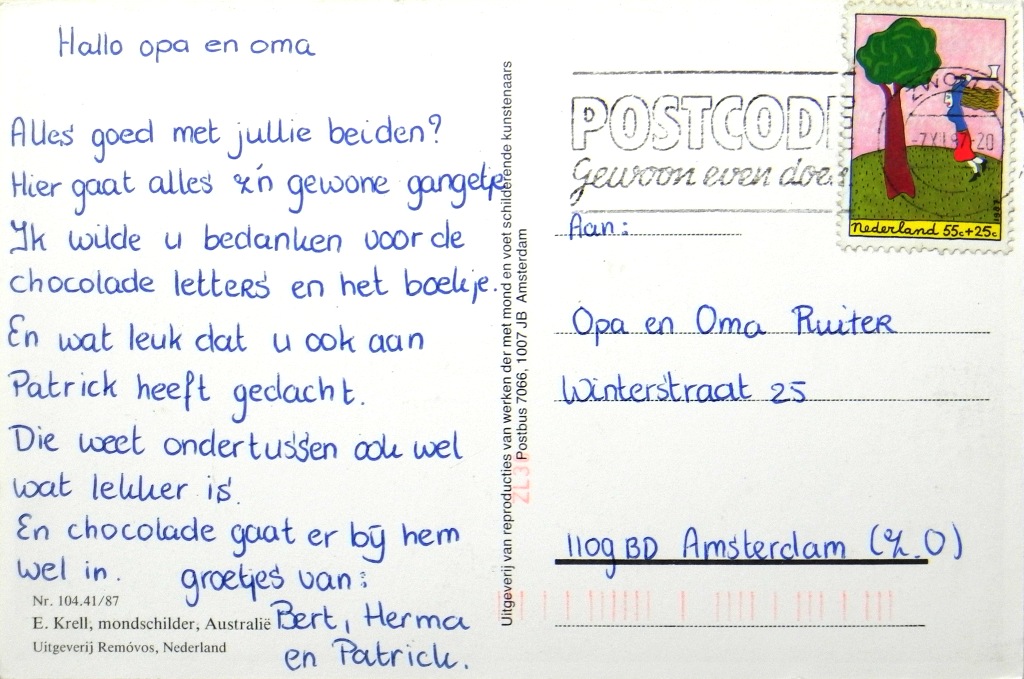 Hallo opa en oma
Alles goed met jullie beiden?
Hier gaat alles z'n gewone gangetje
Ik wilde u bedanken voor de
chocolade letters en het boekje.
En wat leuk dat u ook aan
Patrick heeft gedacht.
Die weet ondertussen ook wel
wat lekker is.
En chocolade gaat er bij hem
wel in.
groetjes van:
Bert, Herma
en Patrick.
Nr. 104.41/87
E. Krell, mondschilder, Australië
Uitgeverij Remóvos, Nederland
Uitgeverij van reproducties van werken der met mond en voet schilderende kunstenaars
Postbus 7066, 1007 JB Amsterdam
POSTCODE
Gewoon even doen
Nederland 55c+25c
1987
Aan:
Opa en Oma Ruiter
Winterstraat 25
1109 BD Amsterdam (Z.O)